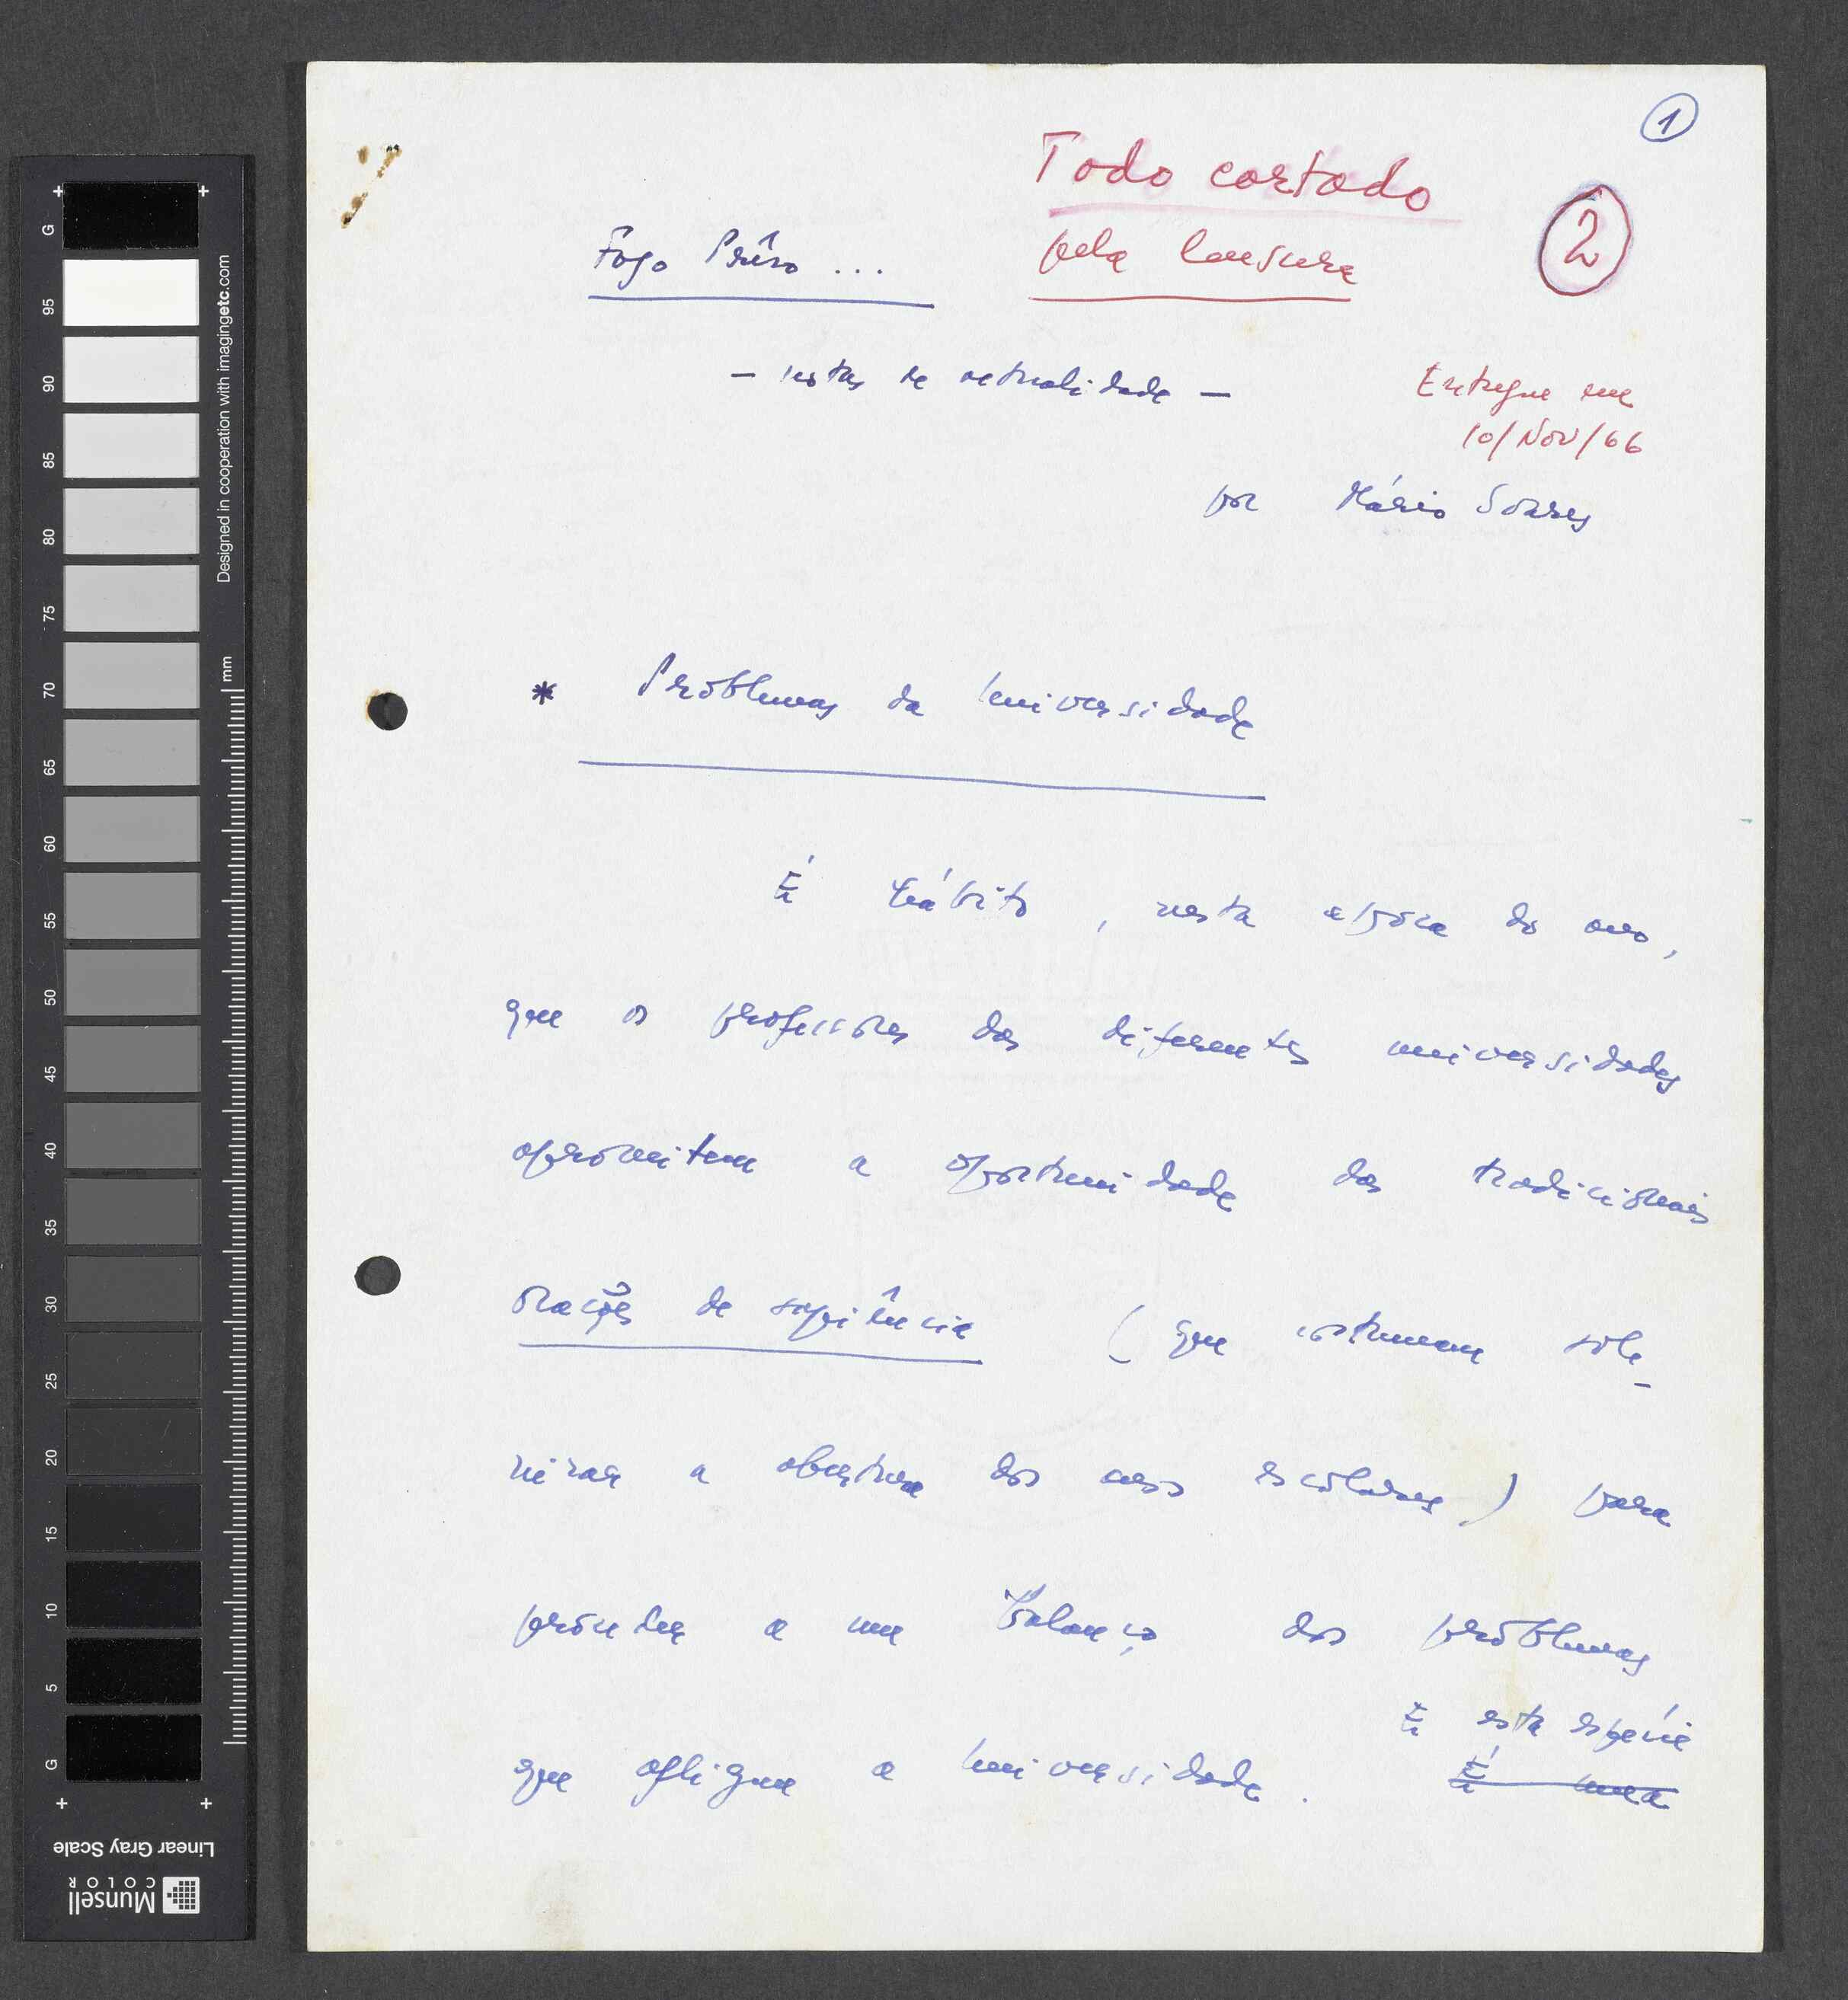 1
Todo cortado
pela Censura
2
Fogo Prêso ...
- notas de actualidade -
Entregue em
10/Nov/66
por Mário Soares
* Problemas da Universidade
É hábito, nesta época do ano,
que os professores das diferentes universidades
aproveitem a oportunidade das tradicionais
orações de sapiência (que costumam sole-
nizar a abertura dos anos escolares) para
proceder a um balanço dos problemas
É esta espécie
que afligem a Universidade. É uma
Designed in cooperation with imagingetc.com
mm
G
95
90
85
80
75
70
65
60
55
50
45
40
35
30
25
20
15
10
5
G
Linear Gray Scale
Munsell
COLOR